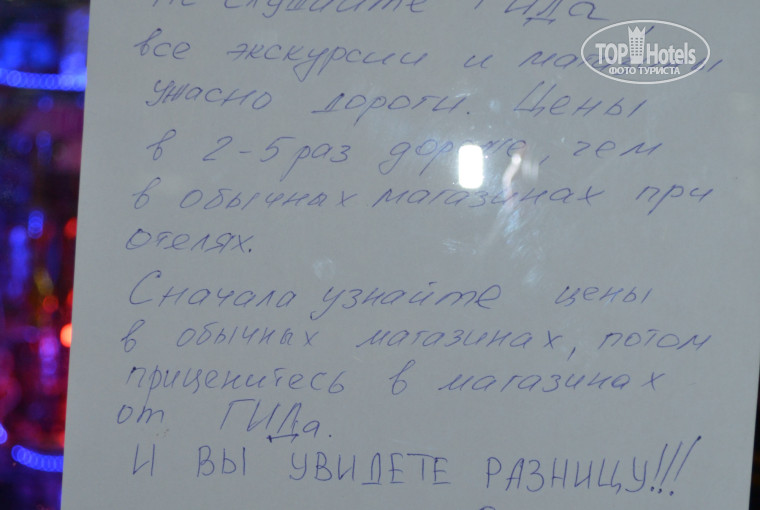 Не слушайте ГИДа,
все экскурсии и магазины
ужасно дороги. Цены
в 2-5 раз дороже, чем
в обычных магазинах при
отелях.
Сначала узнайте цены
в обычных магазинах, потом
приценитесь в магазинах
от ГИДа.
И ВЫ УВИДЕТЕ РАЗНИЦУ!!!
TOP Hotels
ФОТО ТУРИСТА